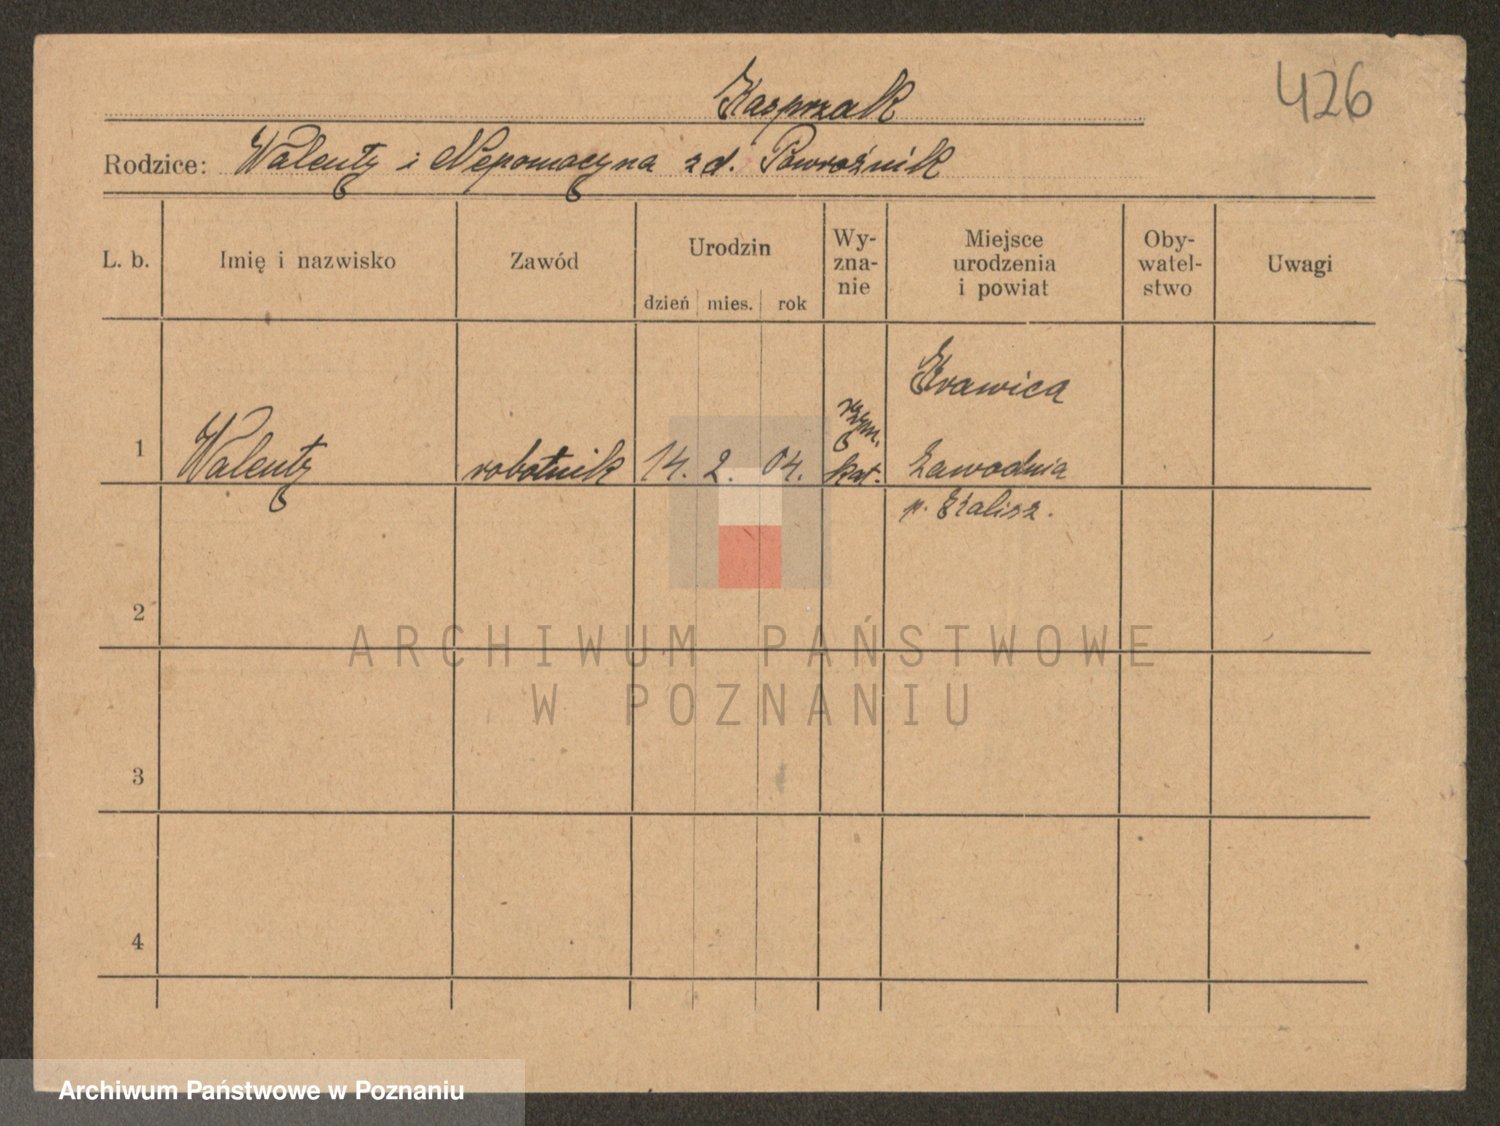 Kasprzak
426
Rodzice: Walenty i Nepomocyna z d. Powroźnik
L. b.
Imię i nazwisko
Zawód
Urodzin
dzień mies. rok
Wy-
zna-
nie
Miejsce
urodzenia
i powiat
Oby-
watel-
stwo
Uwagi
1
Walenty
robotnik
14. 2. 04.
rzym.
kat.
Krawica
Zawodnia
p. Kalisz.
2
3
4
ARCHIWUM PAŃSTWOWE
W POZNANIU
Archiwum Państwowe w Poznaniu